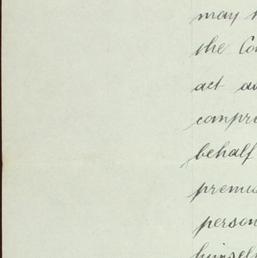 may
the Co
act a
compri
behalf
premis
person
himsel